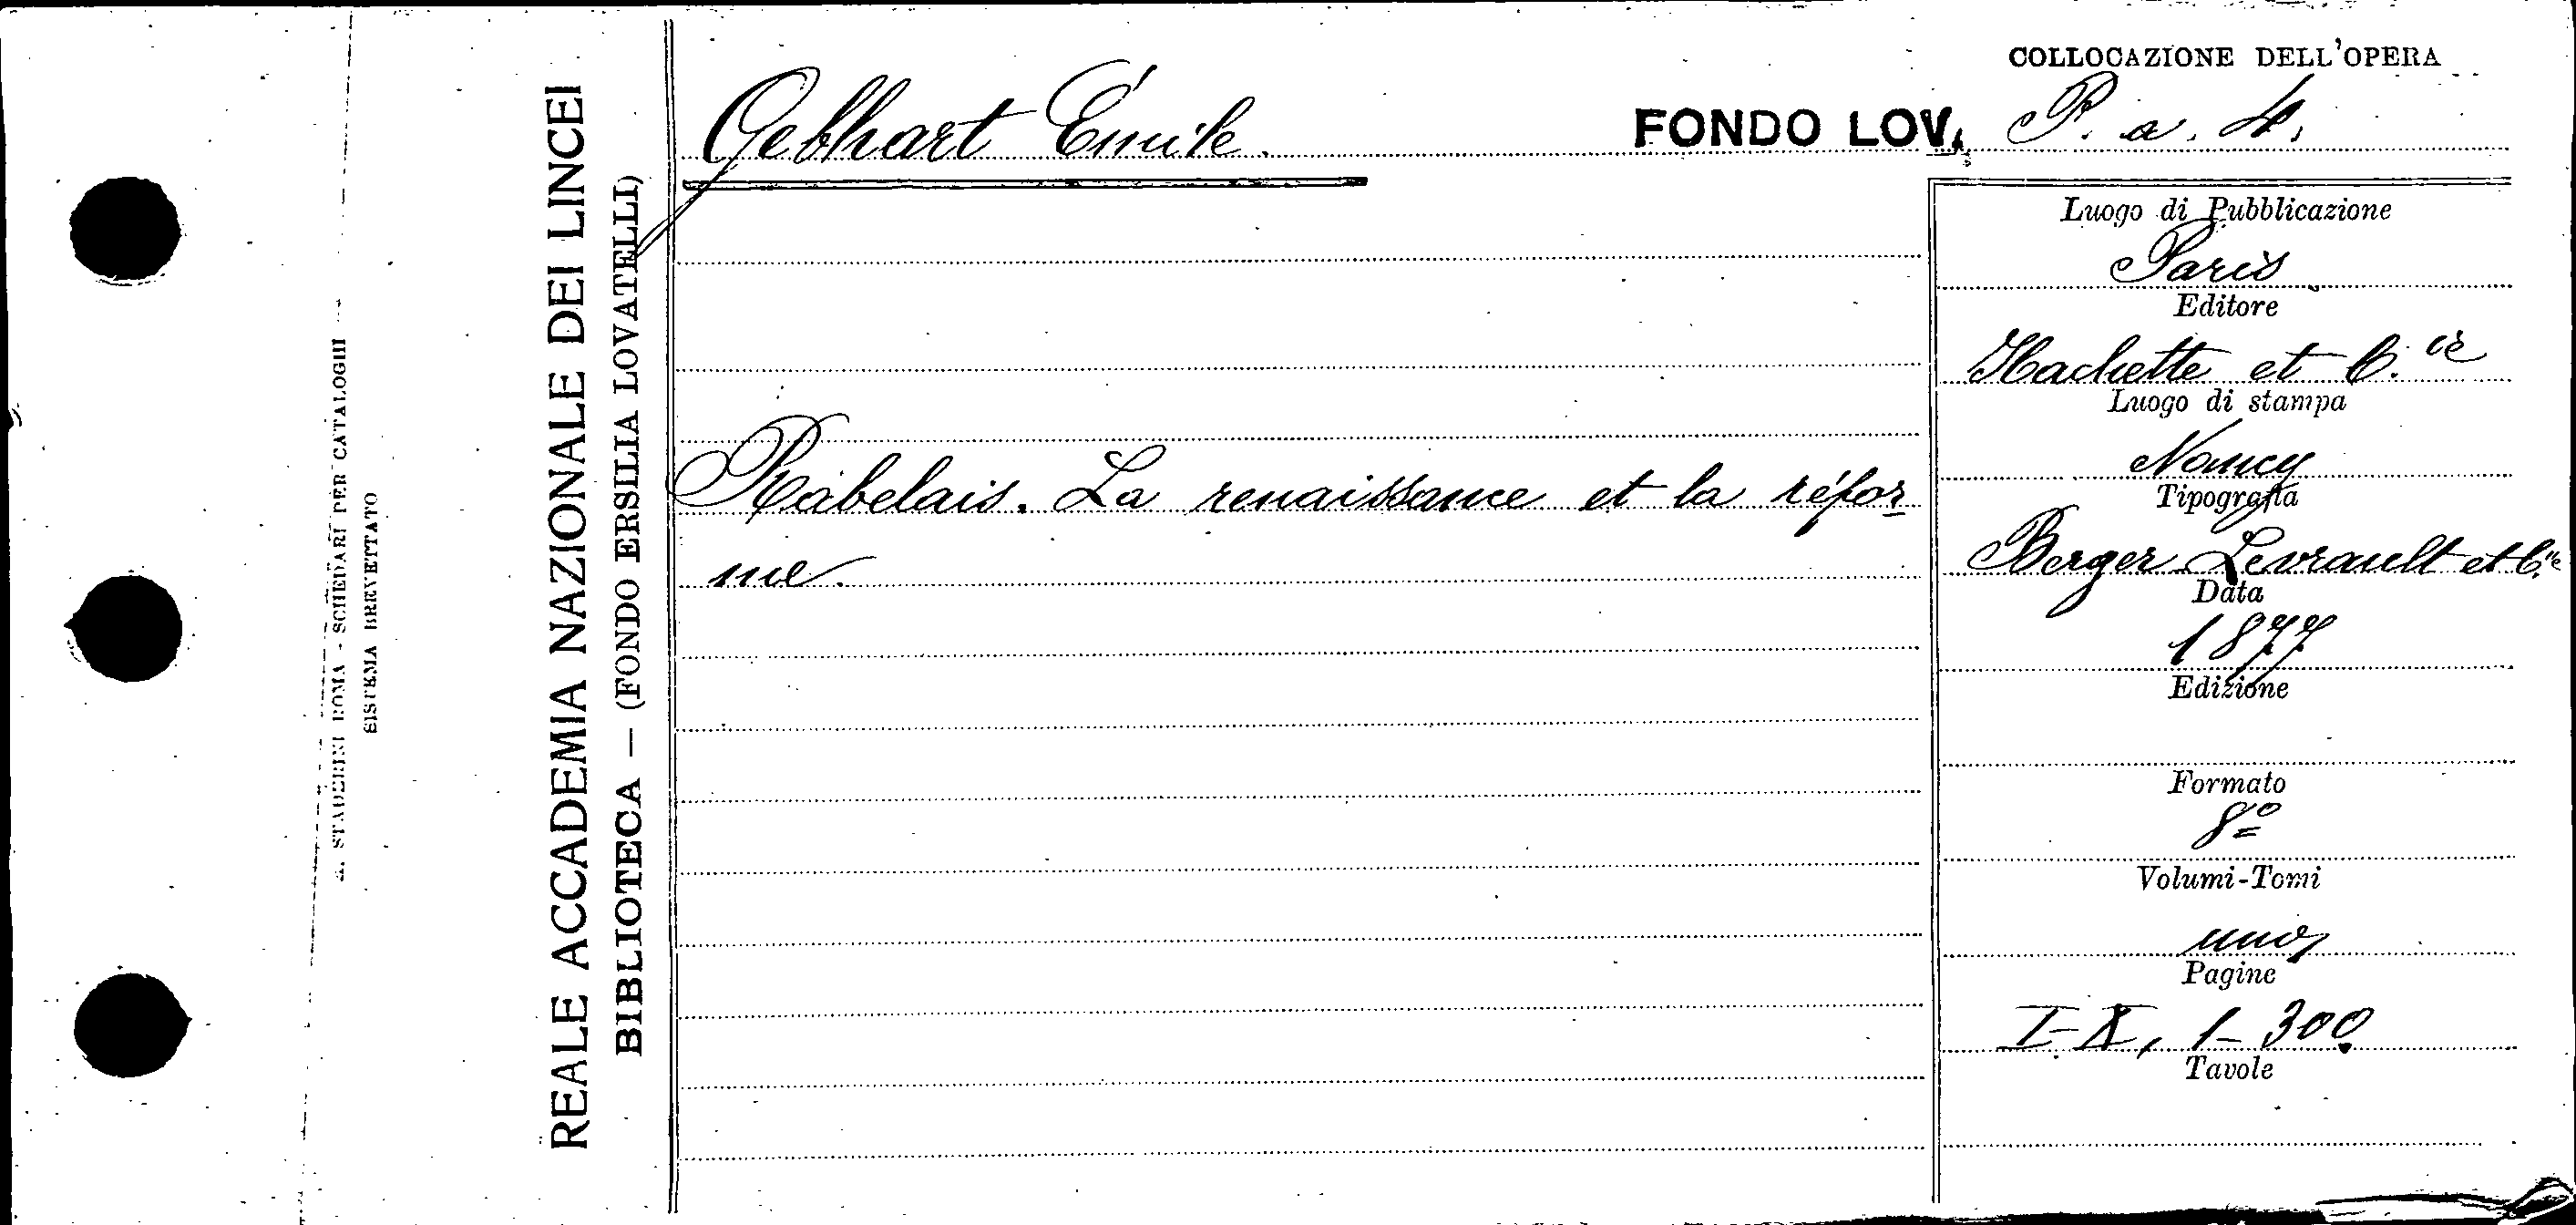 COLLOCAZIONE DELL'OPERA
Gebhart Émile.
FONDO LOV. P. a. 4.
Luogo di Pubblicazione
Paris
Editore
Hachette et C.ie
Luogo di stampa
Nancy
Tipografia
Berger Levrault et C.ie
Data
1877
Edizione
Formato
8º
Volumi-Tomi
uno
Pagine
I-X, 1-300
Tavole
Rabelais. La renaissance et la réfor-
me.
REALE ACCADEMIA NAZIONALE DEI LINCEI
BIBLIOTECA — (FONDO ERSILIA LOVATELLI)
STADERINI ROMA - SCHEDARI PER CATALOGHI
SISTEMA BREVETTATO